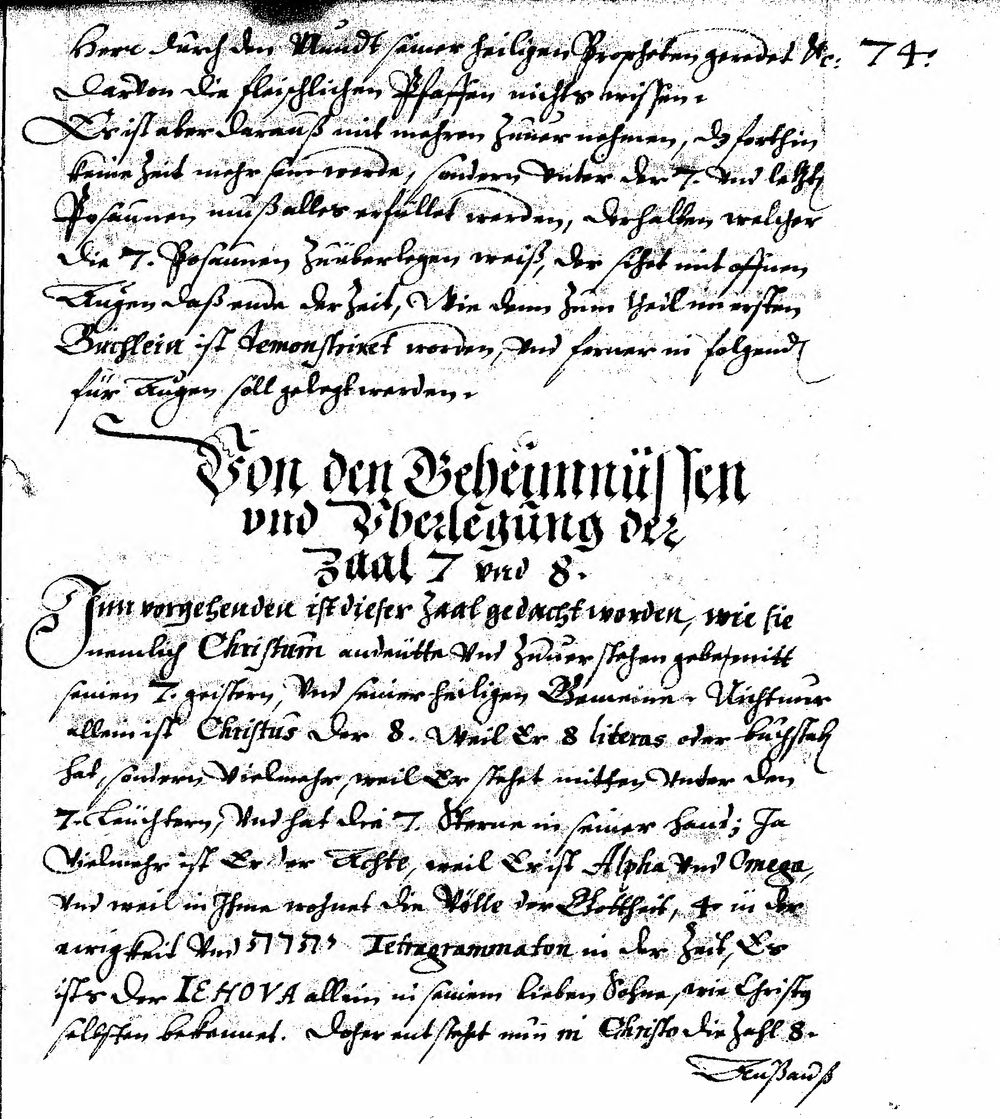 Herr durch den Mundt seiner heiligen Propheten geredet etc: 74.
Darvon die fleischlichen Pfaffen nichts wissen.
Es ist aber darauß mit mehren zuuernehmen, dz forthin
keine Zeit mehr sein werde, sondern vnter der 7. vnd letzt
Posaunen muß alles erfüllet werden, derhalben welcher
die 7. Posaunen zuüberlegen weiß, der sihet mit offnen
Augen daß ende der Zeit, Wie denn zum theil im ersten
Büchlein ist demonstriret worden, vnd ferner in folgend
für Augen soll gelegt werden.
Von den Geheimnüssen
vnd Vberlegung der
Zaal 7 vnd 8.
Inn vorgehenden ist dieser Zaal gedacht worden, wie sie
nemlich Christum andeütte vnd zuuerstehen gebe, mitt
seinen 7. geistern, vnd seiner heiligen Gemeine. Nicht nur
allein ist Christus der 8. Weil Er 8 literas oder buchstab
hat, sondern Vielmehr, weil Er stehet mitten vnter den
7. Leüchtern, Vnd hat die 7. Sterne in seiner Hand; Ja
Vielmehr ist Er der Achte, weil Er ist Alpha vnd Omega,
vnd weil in Ihme wohnet die Völle der Gottheit, 4. in der
ewigkeit vnd יהוה Tetragrammaton in der Zeit, Es
ists der IEHOVA allein in seinem lieben Sohne, wie Christus
selbsten bekennet. Doher entstehet nun in Christo die Zahl 8.
Außauß